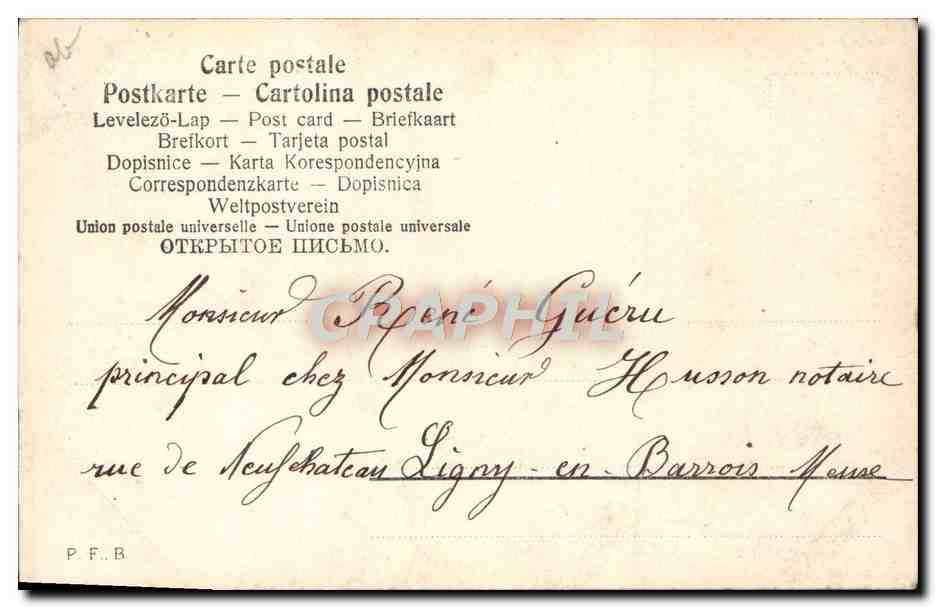 ab
Carte postale
Postkarte — Cartolina postale
Levelező-Lap — Post card — Briefkaart
Brefkort — Tarjeta postal
Dopisnice — Karta Korespondencyjna
Correspondenzkarte — Dopisnica
Weltpostverein
Union postale universelle — Unione postale universale
ОТКРЫТОЕ ПИСЬМО.
CPAPHIL
Monsieur René Guéru
principal chez Monsieur Husson notaire
rue de Neufchateau Ligny-en-Barrois Meuse
P. F. B.